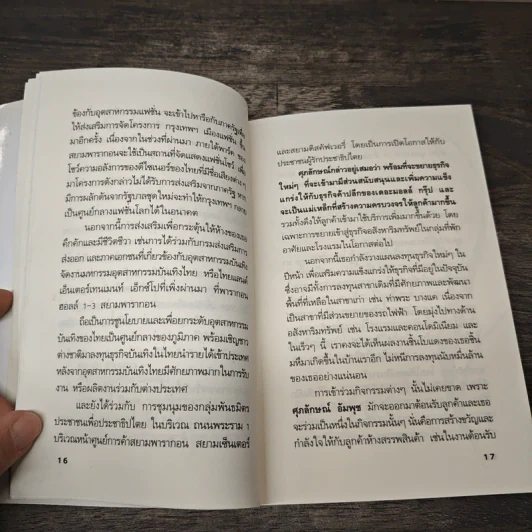 ข้องกับอุตสาหกรรมแฟชั่น จะเข้าไปหารือกับภาครัฐเพื่อ
ให้ส่งเสริมการจัดโครงการ กรุงเทพฯ เมืองแฟชั่น ขึ้น
มาอีกครั้ง เนื่องจากในช่วงที่ผ่านมา ภายใต้พาร์ค ของ
สยามพารากอนจะใช้เป็นสถานที่จัดแสดงแฟชั่นโชว์ เพื่อ
โชว์ความอลังการของดีไซเนอร์ของไทยที่มีชื่อเสียงดังๆ แต่
มาโครงการดังกล่าวไม่ได้รับการส่งเสริมจากภาครัฐ หาก
มีการผลักดันจากรัฐบาลชุดใหม่จะทำให้กรุงเทพฯ กลาย
เป็นศูนย์กลางแฟชั่นโลกได้ในอนาคต
นอกจากนี้การส่งเสริมเพื่อกระตุ้นให้ห้างของเรา
คึกคักและมีชีวิตชีวา เช่นการได้ร่วมกับกรมส่งเสริมการ
ส่งออก และภาคเอกชนที่เกี่ยวข้องกับอุตสาหกรรมบันเทิง
จัดงานมหกรรมอุตสาหกรรมบันเทิงไทย หรือไทยแลนด์
เอ็นเตอร์เทนเมนท์ เอ็กซ์โปที่เพิ่งผ่านมา ที่พารากอน
ฮอลล์ 1-3 สยามพารากอน
ถือเป็นการชูนโยบายและเพื่อยกระดับอุตสาหกรรม
บันเทิงของไทยเป็นศูนย์กลางของภูมิภาค พร้อมเชิญชาว
ต่างชาติมาลงทุนธุรกิจบันเทิงในไทยนำรายได้เข้าประเทศ
หลังจากอุตสาหกรรมบันเทิงไทยมีศักยภาพมากในการรับ
งาน หรือผลิตงานร่วมกับต่างประเทศ
และยังได้ร่วมกับ การชุมนุมของกลุ่มพันธมิตร
ประชาชนเพื่อประชาธิปไตย ในบริเวณ ถนนพระราม 1
บริเวณหน้าศูนย์การค้าสยามพารากอน สยามเซ็นเตอร์
16
และสยามดิสคัฟเวอรี่ โดยเป็นการเปิดโอกาสให้กับ
ประชาชนผู้รักประชาธิปไตย
ศุภลักษณ์กล่าวอยู่เสมอว่า พร้อมที่จะขยายธุรกิจ
ใหม่ๆ ที่จะเข้ามามีส่วนสนับสนุนและเพิ่มความแข็ง
แกร่งให้กับธุรกิจค้าปลีกของเดอะมอลล์ กรุ๊ป และ
จะเป็นแม่เหล็กที่สร้างความครบวงจรให้ลูกค้ามากขึ้น
รวมทั้งดึงให้ลูกค้าเข้ามาใช้บริการเพิ่มมากขึ้นด้วย โดย
เฉพาะการขยายเข้าสู่ธุรกิจอสังหาริมทรัพย์ในกลุ่มที่พัก
อาศัยและโรงแรมในโอกาสต่อไป
นอกจากนี้เธอกำลังวางแผนลงทุนธุรกิจใหม่ๆ ใน
ปีหน้า เพื่อเสริมความแข็งแกร่งให้ธุรกิจที่มีอยู่ในปัจจุบัน
ซึ่งอาจมีทั้งการลงทุนสาขาเดิมที่มีศักยภาพและพัฒนา
พื้นที่ที่เหลือในสาขาเก่า เช่น ท่าพระ บางแค เนื่องจาก
เป็นสาขาที่มีส่วนขยายของรถไฟฟ้า โดยมุ่งไปทางด้าน
อสังหาริมทรัพย์ เช่น โรงแรมและคอนโดมิเนียม และ
ในเร็วๆ นี้ เราคงจะได้เห็นผลงานชิ้นโบแดงของเธอชิ้น
มที่มาเกิดขึ้นในบ้านเราอีก ไม่หนีการลงทุนนับหมื่นล้าน
ของเธออย่างแน่นอน
การเข้าร่วมกิจกรรมต่างๆ นั้นไม่เคยขาด เพราะ
ศุภลักษณ์ อัมพุช มักจะออกมาต้อนรับลูกค้าและเธอ
จะร่วมเป็นหนึ่งในกิจกรรมนั้นๆ นั่นคือการสร้างขวัญและ
กำลังใจให้กับลูกค้าห้างสรรพสินค้า เช่นในงานต้อนรับ
17